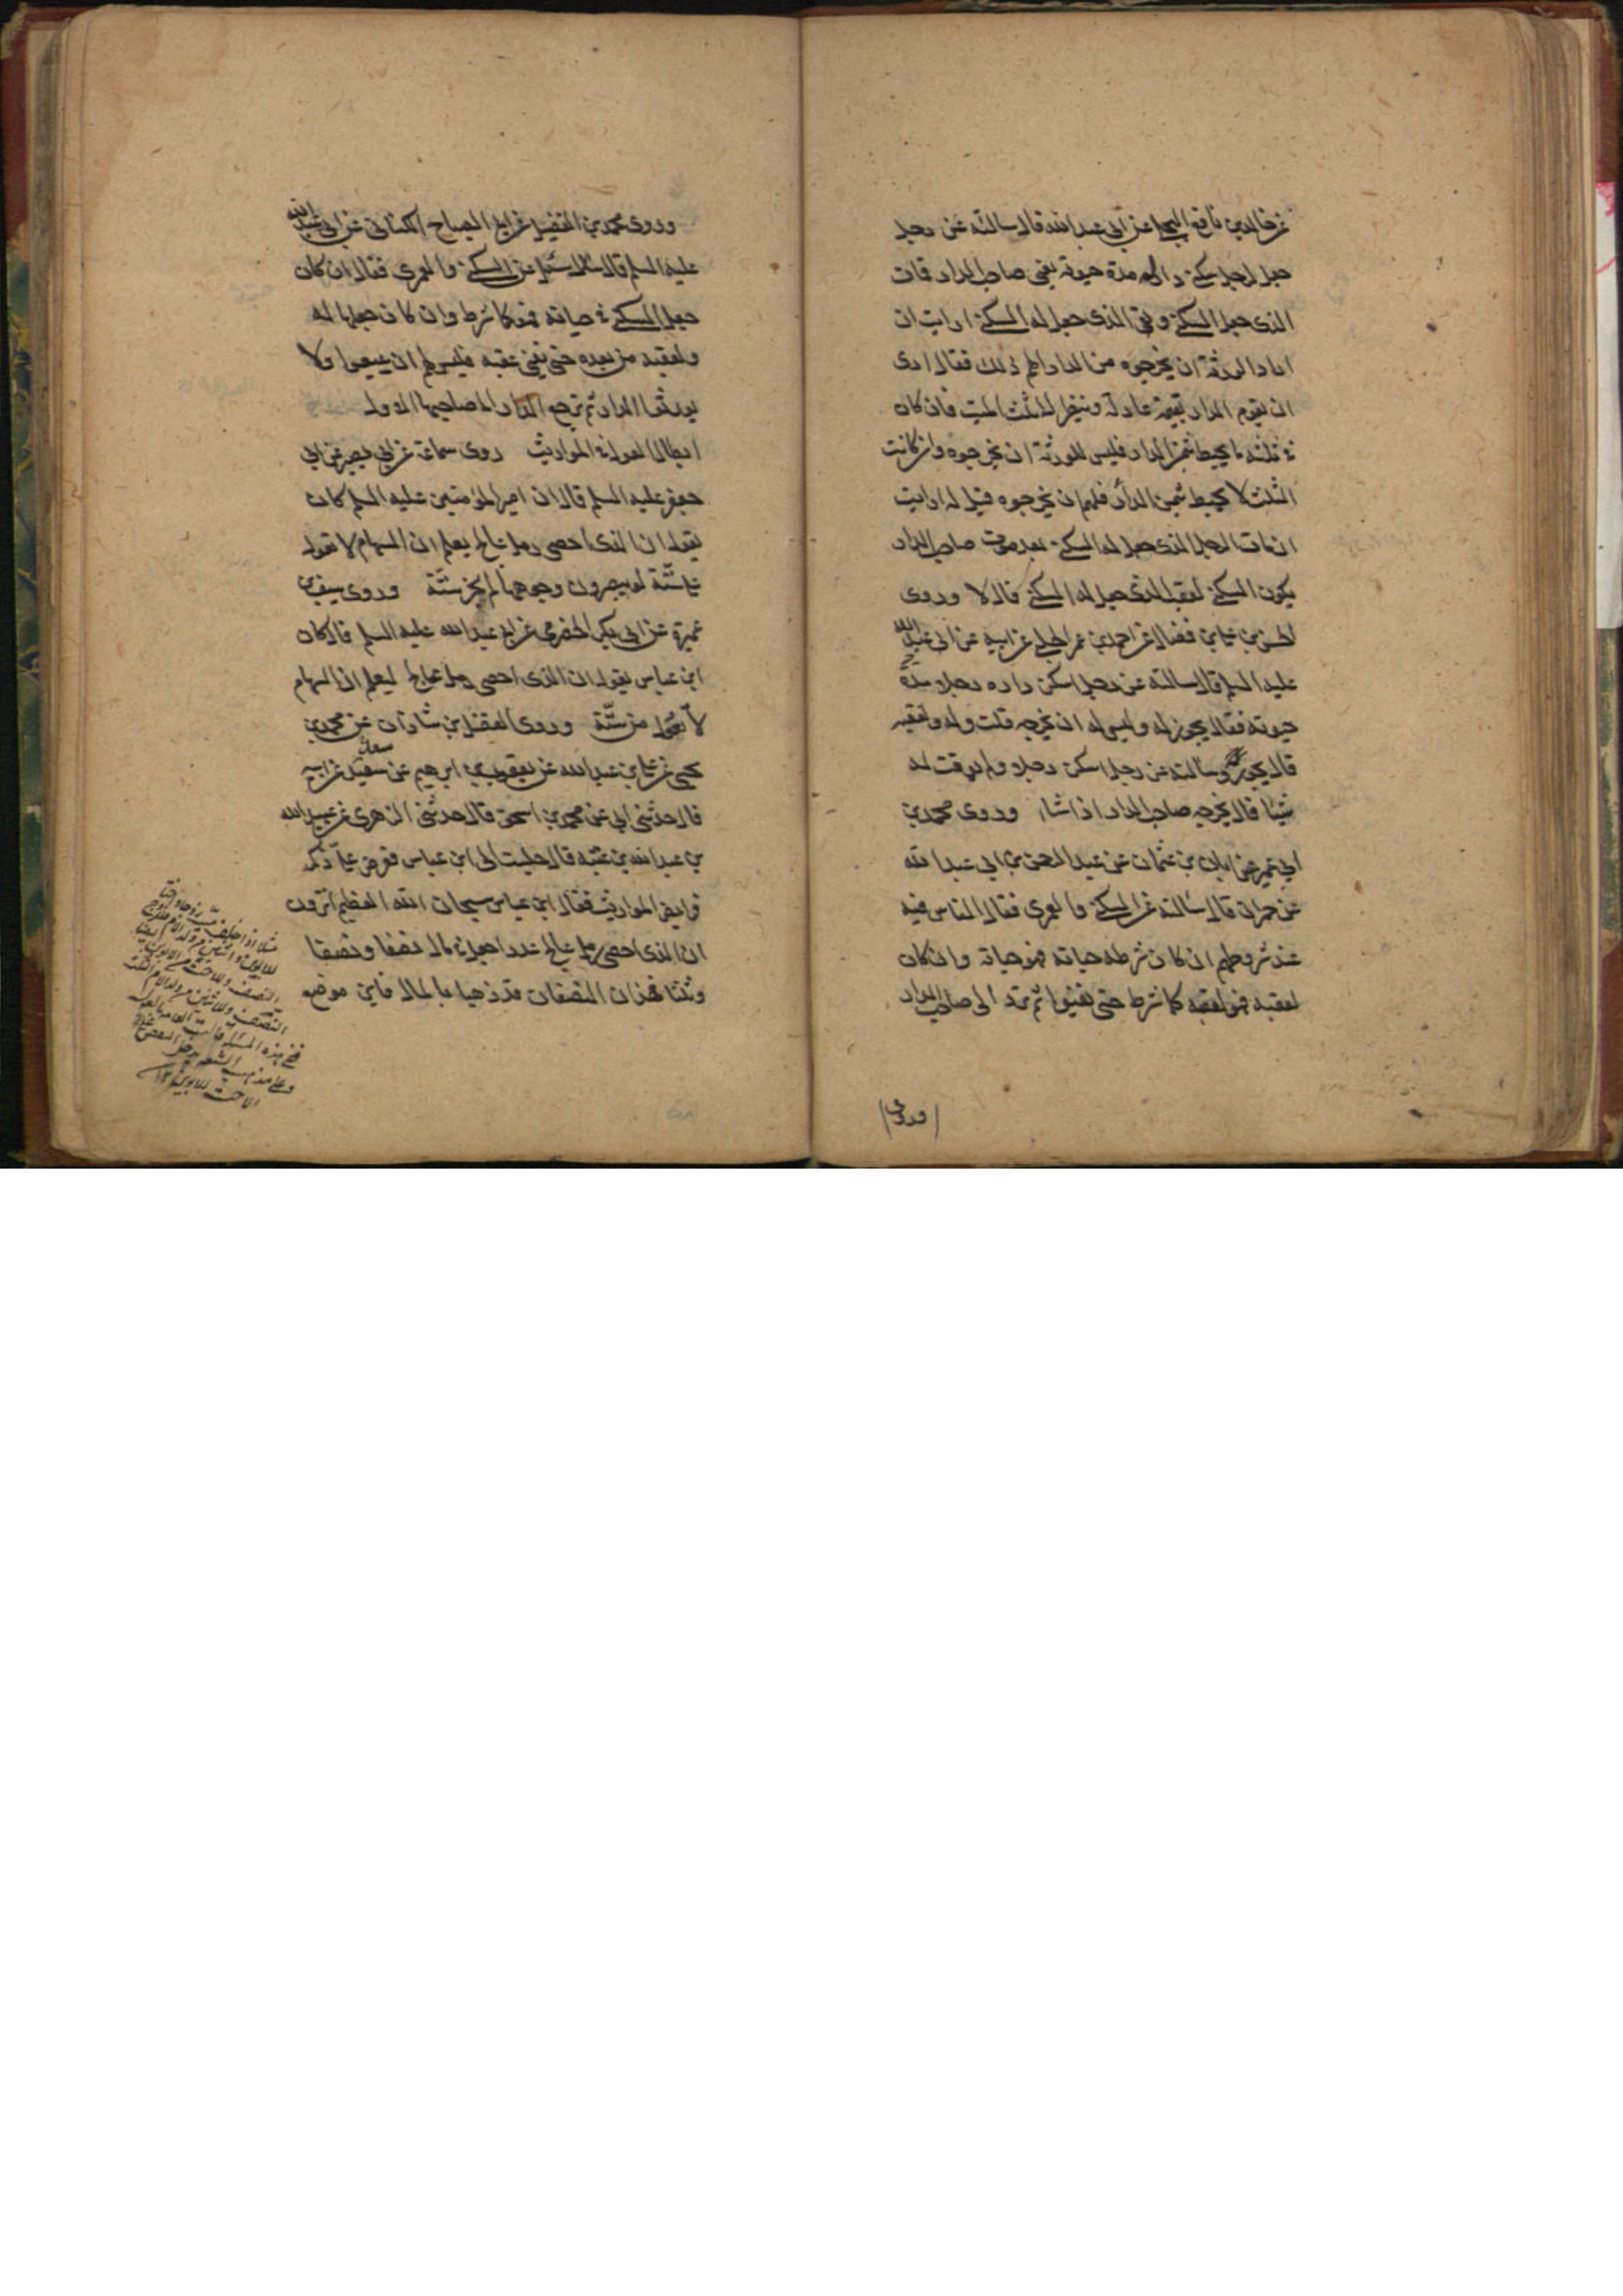 عن خالد بن نافع البجلي عن ابي عبد الله قال سالته عن رجل
جعل لرجل سكنى دار له مدة حيوته يعنى صاحب الدار فمات
الذى جعل السكنى وبقى الذى جعل له السكنى ارايت ان
اراد الورثة ان يخرجوه من الدار الهم ذلك فقال ارى
ان يقوم الدار بقيمة عادلة وينظر الى ثلث الميت فان كان
فى ثلثه ما يحيط بثمن الدار فليس للورثة ان يخرجوه وان كانت
الثلث لا يحيط بثمن الدار فلهم ان يخرجوه قيل له ارايت
ان مات الرجل الذى جعل له السكنى بعد موت صاحب الدار
يكون السكنى لعقب الذى جعل له السكنى قال لا وروى
الحسن بن على بن فضال عن احمد بن عمر الحلبى عن ابيه عن ابى عبد الله
عليه السلم قال سالته عن رجل اسكن داره رجلا مدة
حيوته فقال يجوز له وليس له ان يخرجه قلت وله ولعقبه
قال يجوز وسالته عن رجل اسكن رجلا ولم يوقت له
شيئا قال يخرجه صاحب الدار اذا شاء وروى محمد بن
ابي عمير عن ابان بن عثمان عن عبد الرحمن بن ابي عبد الله
عن حمران قال سالته عن السكنى والعمرى فقال الناس فيه
عند شروطهم ان كان شرطه حياته فهو حياته وان كان
لعقبه فهو لعقبه كما شرط حتى يفنوا ثم ترد الى صاحب الدار
وروى
وروى محمد بن الفضيل عن ابى الصباح الكنانى عن ابى عبد الله
عليه السلم قال سئل عن السكنى والعمرى فقال ان كان
جعل السكنى فى حياته فهو كما شرط وان كان جعلها له
ولعقبه من بعده حتى يفنى عقبه فليس لهم ان يبيعوا ولا
يورثوا الدار ثم ترجع الدار الى صاحبها الاول
ابطال العول فى المواريث روى سماعة عن ابى بصير عن ابى
جعفر عليه السلم قال ان امير المؤمنين عليه السلم كان
يقول ان الذى احصى رمل عالج يعلم ان السهام لا تعول
على ستة لو يبصرون وجوهها لم تجز ستة وروى سيف بن
عميرة عن ابى بكر الحضرمى عن ابى عبد الله عليه السلم قال كان
ابن عباس يقول ان الذى احصى رمل عالج ليعلم ان السهام
لا تعول من ستة وروى الفضل بن شاذان عن محمد بن
يحيى عن على بن عبد الله عن يعقوب بن ابرهيم عن سعد عن ابيه
قال حدثنى ابى عن محمد بن اسحق قال حدثنى الزهرى عن عبيد الله
بن عبد الله بن عتبة قال جلست الى ابن عباس فعرض على ذكر
فرايض المواريث فقال ابن عباس سبحان الله العظيم اترون
ان الذى احصى رمل عالج عددا جعل فى مال نصفا ونصفا
وثلثا فهذان النصفان قد ذهبا بالمال فاين موضع